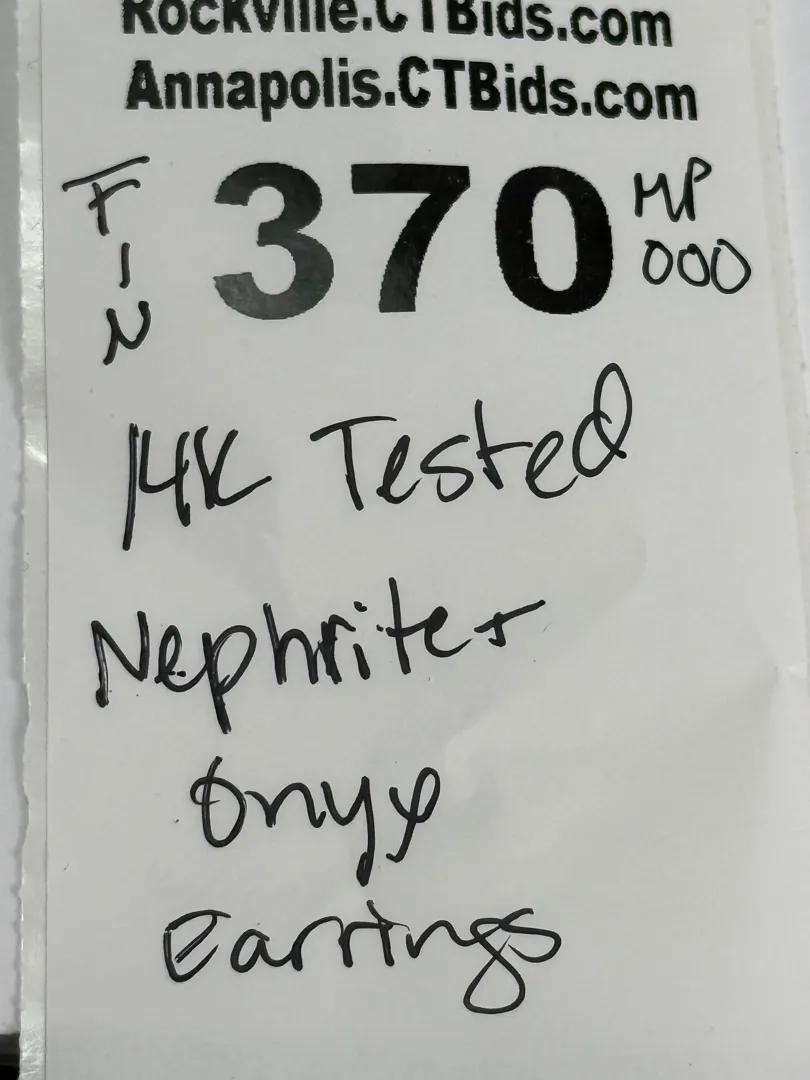 Rockville.CTBids.com
Annapolis.CTBids.com
FIN 370 MP
000
14K Tested
Nephrite +
Onyx
Earrings